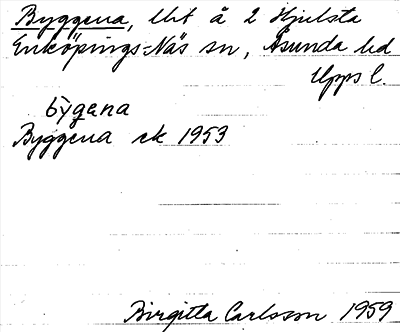 Byggena, lht å 2 Hjulsta
Enköpings-Näs sn, Åsunda hd
Upps l.
bygena
Byggena ek 1953
Birgitta Carlsson 1959